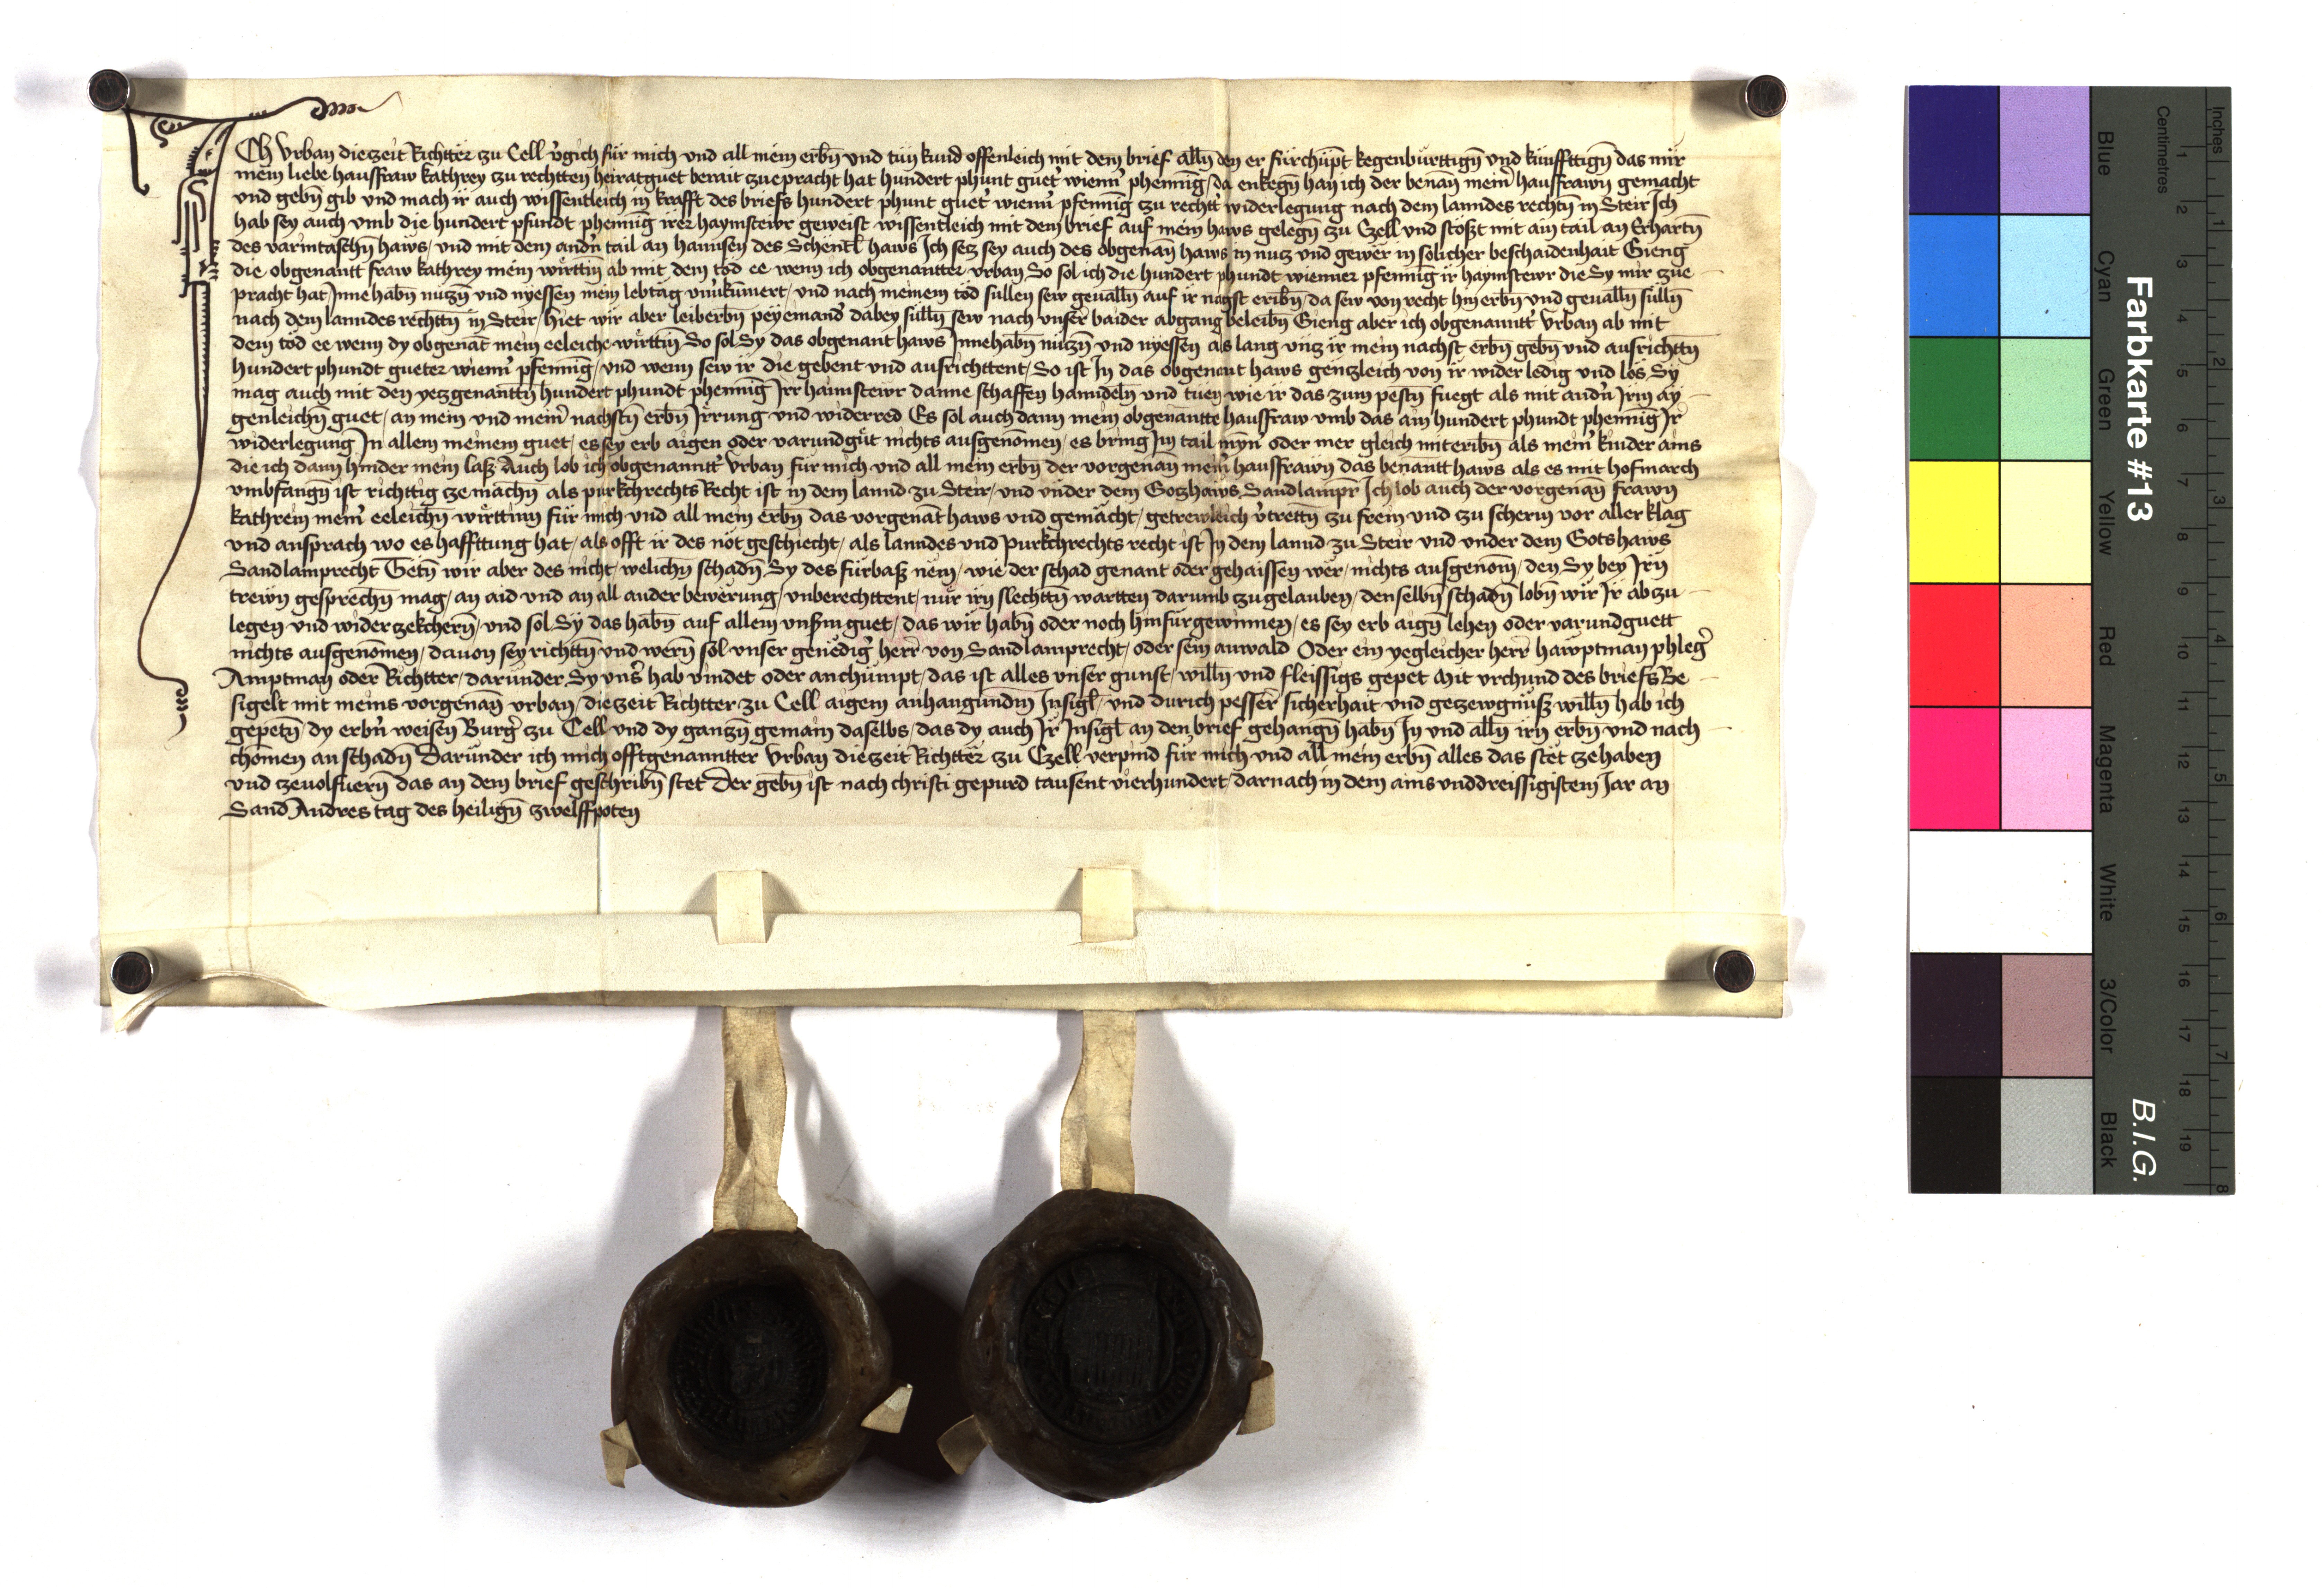 Ich Vrban die zeit Richtter zu Cell v̉gich für mich vnd all mein erbn̄ vnd tün kund offenleich mit dem brief alln̄ den er fürchüpt kegenbürttign̄ vnd künffttign̄ das mir
mein liebe hausfraw kathrey zu rechtten heiratguet berait zuepracht hat hundert phunt guet̉ wienn̉ phenni̅g / da enkegn̄ han ich der benan̄ mein̉ hausfrawn gemacht
vnd gebn̄ gib vnd mach ir auch wissentleich in krafft des briefs hundert phunt guet̉ wienn̉ pfenni̅g zu rechtt̉ widerlegung nach dem lanndes rechtn̄ in Steir Ich
hab sey auch vmb die hundert pfundt phenni̅g irer haymstewr geweist wissentleich mit dem brief auf mein haws gelegn̄ zu Czell vnd stöszt mit ain tail an Erhartn̄
des varintaschn̄ haws / vnd mit dem andn̉ tail an hannsen des Schentl haws Ich secz sey auch des obgenan̄ haws in nucz vnd gewer in sölicher beschaidenhait Gieng
die obgenantt fraw kathrey mein wirttin̄ ab mit dem tod ee wenn ich obgenantter vrban So sol ich die hundert phundt wienner pfenni̅g ir haymstewr die Sy mir zue
pracht hat Innehabn̄ nüczn̄ vnd nyessen mein lebtäg vnükümert / vnd nach meinem töd süllen sew geualln̄ auf ir nagst eribn̄ / da sew von recht hin erbn̄ vnd geualln̄ sülln̄
nach dem lanndes rechttn̄ in Steir / hiet wir aber leiberbn̄ peyemand̉ dabey sülln̄ sew nach vnser̄ baider abgang beleibn̄ Gieng aber ich obgenanntt̉ Vrban ab mit
dem tod ee wenn dy obgenāt mein eeleiche wirttin̄ So sol Sy das obgenant haws Innehabn̄ nüczn̄ vnd nyessen als lang vncz ir mein nachst erbn̄ gebn̄ vnd ausrichttn̄
hundert phundt gueter wienn̉ pfenni̅g / vnd wenn sew ir die gebent vnd ausrichttent / So ist In das obgenant haws genczleich von ir wider ledig vnd lös Sy
mag auch mit den yeczgenanttn̄ hundert phundt phenni̅g Irr haimstewr danne schaffen hanndeln̄ vnd tüen wie ir das zum pestn̄ fuegt als mit andn̉ Irm äy
genleichn̄ guet / an mein vnd mein̉ nachstn̄ erbn̄ Irrung vnd widerred Es sol auch dann mein obgenantte hausfraw vmb das ain hundert phundt phenni̅g Ir
widerlegung In allem meinem guet / es sey erb aigen oder varundgüt nichts ausgenōmen / es bring Im tail mȳn̉ oder mer gleich miteribn̄ als mein̉ kinder ains
die ich dann hinder mein lasz Auch lob ich obgenanntt̉ Vrban für mich vnd all mein erbn̄ der vorgenan̄ mein̉ hausfrawn das benantt haws als es mit hofmarch
vmbfangn̄ ist richttig ze machn̄ als purkchrechts Recht ist in dem lannd zu Steir / vnd vnder dem Goczhaws Sandlampr̄ Ich lob auch der vorgenan̄ frawn
kathrein mein̉ eeleichn̄ wirttinn für mich vnd all mein erbn̄ das vorgenāt haws vnd gemächt / getrewleich v̉trettn̄ zu frein vnd zu scherm vor aller klag
vnd ansprach wo es haffttung hat / als offt ir des nöt geschiecht / als lanndes vnd purkchrechts recht ist In dem lannd zu Steir vnd vnder dem Gotshaws
Sandlamprecht Getn̄ wir aber des nicht / welichn̄ schadn̄ Sy des fürbasz nem / wie der schad genant oder gehaissen wër / nichts ausgenom̄ / den Sy bey Irn̄
trewn gesprechn̄ mag / an aid vnd an all ander bewërung / vnberechttent / nür irn slechttn̄ wartten darumb zugelauben / denselbn̄ schadn̄ lobn̄ wir Ir abzu
legen vnd widerzekchern̄ / vnd sol Sy das habn̄ auf allem vnsm̉ guet / das wir habn̄ oder noch hinfür gewinnen / es sey erb aign̄ lehen oder varundguett
nichts ausgenōmen / dauon sey richttn̄ vnd wern̄ sol vnser genëdig̉ herr von Sandlamprecht / oder sein anwald Oder ein yegleicher herr hawptman phleg̉
Amptman oder Richtter / darunder Sy vns̉ hab vindet oder anchümpt / das ist alles vnser gunst / willn̄ vnd fleissigs gepet Mit vrchund des briefs Be
sigelt mit meins vorgenan̄ vrban / die zeit Richtter zu Cell aigem anhangundm̄ Insigl / vnd durich pesser̄ sicherhait vnd geczewgnüsz willn̄ hab ich
gepetn̄ / dy erbn̉ weisen Burg̉ zu Cell vnd dy ganczn̄ gemain daselbs / das dy auch Ir Insigl an den brief gehangn̄ habn̄ In vnd alln̄ irn erbn̄ vnd nach
chömen an schadn̄ Darunder ich mich offtgenanntter Vrban die zeit Richtter zu Czell verpind für mich vnd all mein erbn̄ alles das stët ze haben
vnd ze uolfuern̄ das an dem brief geschribn̄ stet Der gebn̄ ist nach christi gepurd tausent vierhundert / darnach in dem ains vnddreissigistem Jar an
Sand Andres tag des heilign̄ zwelffpoten
Farbkarte #13
B.I.G.
Blue Cyan Green Yellow Red Magenta White 3/Color Black
Centimetres 1 2 3 4 5 6 7 8 9 10 11 12 13 14 15 16 17 18 19
Inches 1 2 3 4 5 6 7 8